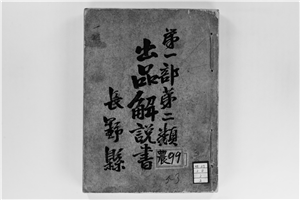 第一部第二類
出品解説書
長野縣
農99